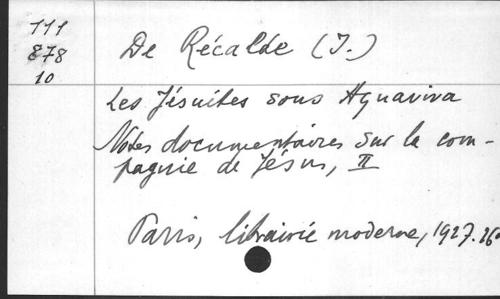 111
878
10
De Récalde (I.)
Les Jésuites sous Aquaviva
Notes documentaires sur la com-
pagnie de Jésus, II
Paris, librairie moderne, 1927. 16°